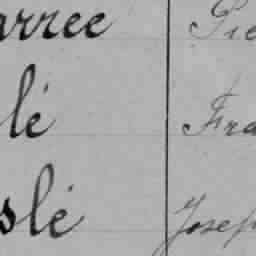 arree Pie
lé Fra
slé Josep